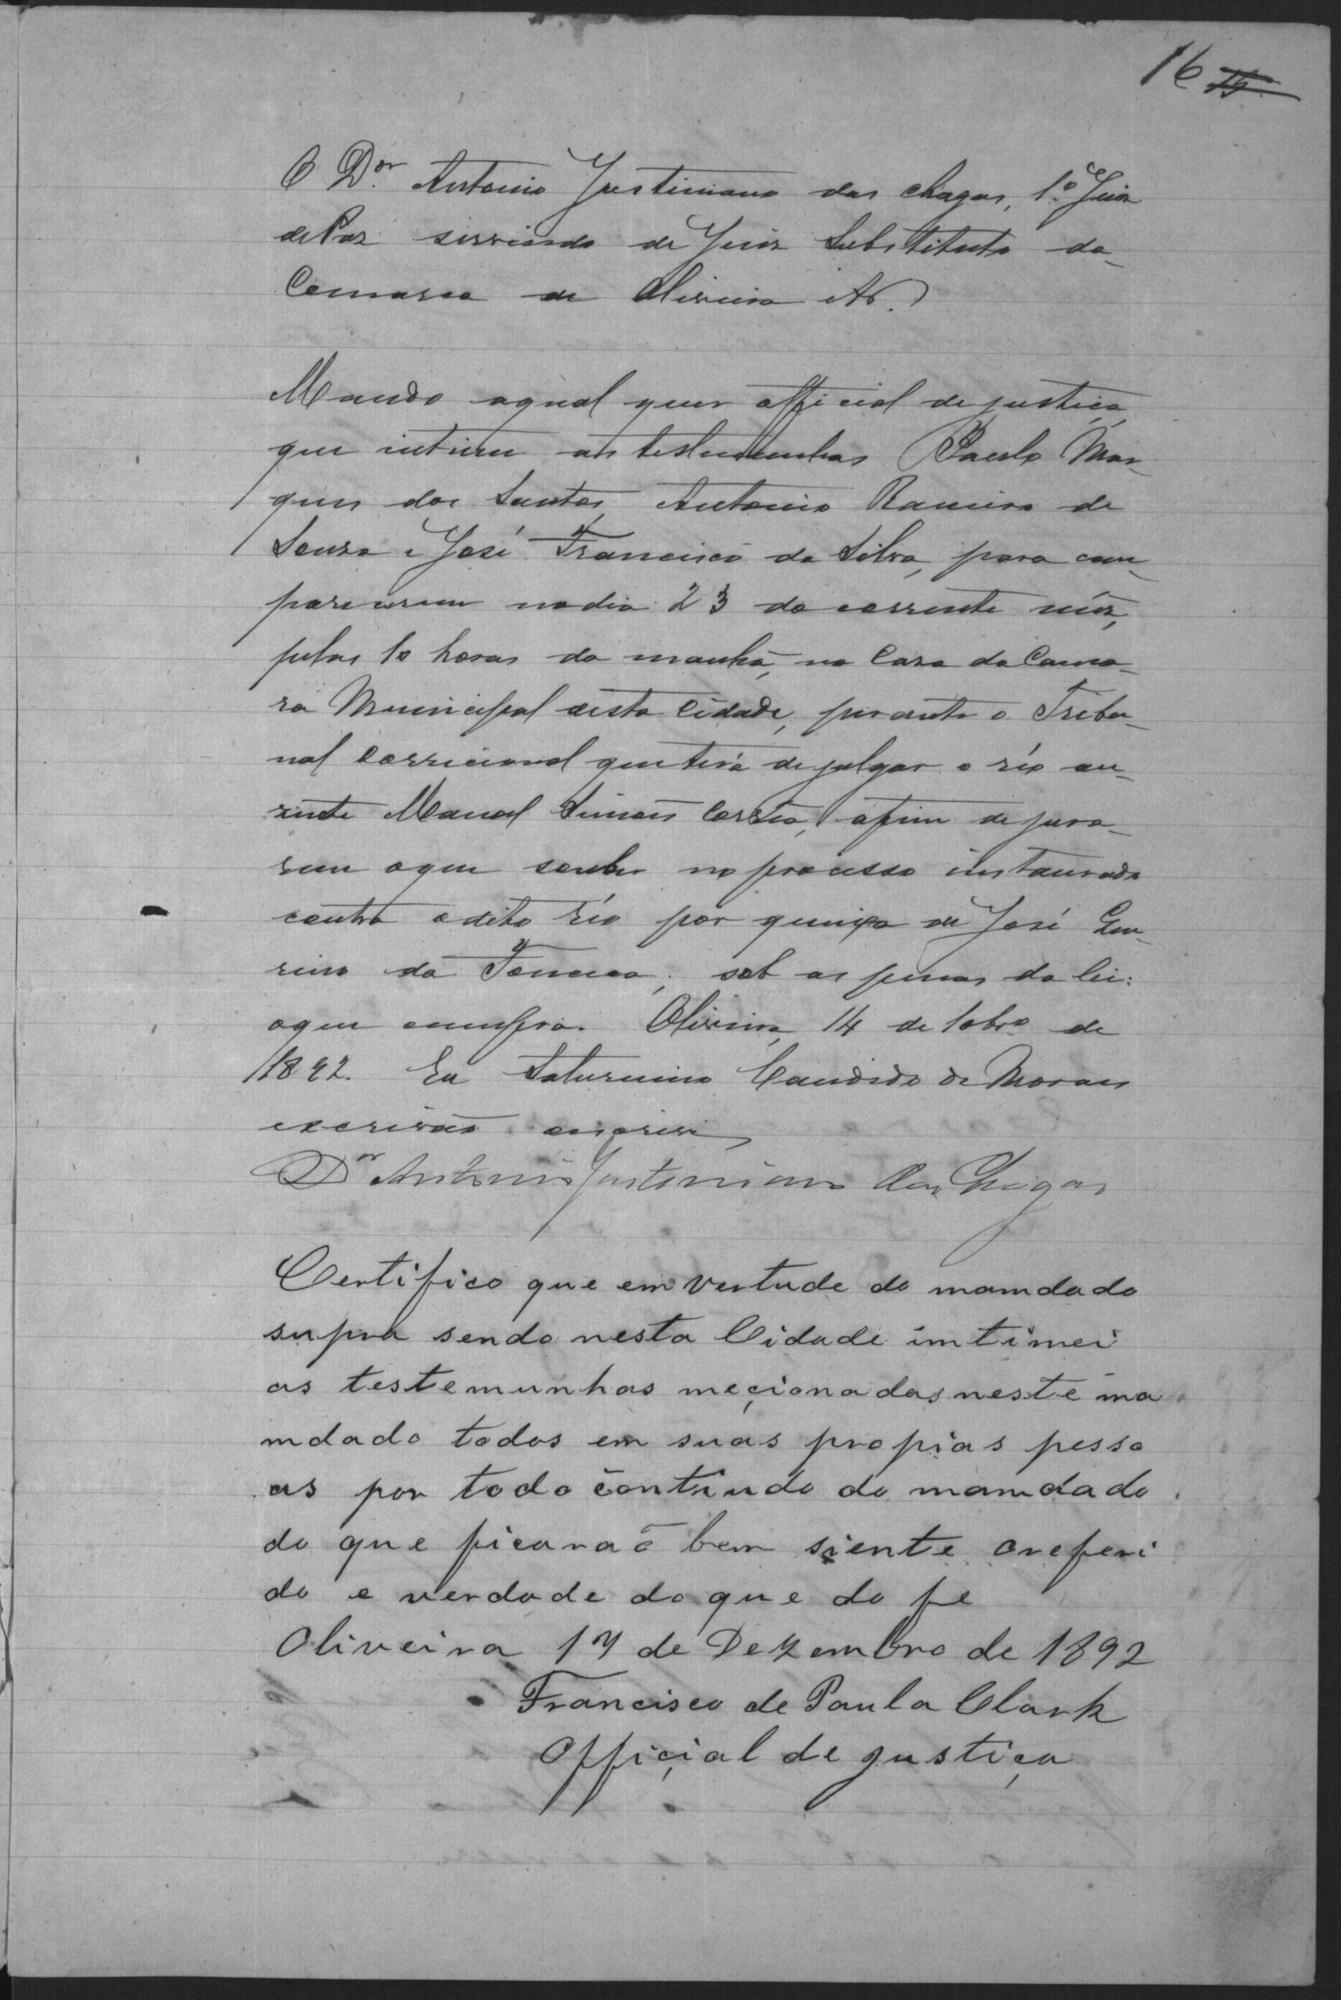 16
O Dor Antonio Justiniano das Chagas, 1º Juiz
de Paz servindo de Juiz Substituto da
Comarca de Oliveira
Mando aqual quer official de justiça
que intime as testemunhas Paulo Mar-
ques dos Santos, Antonio Ramiro de
Souza e José Francisco da Silva, para com-
parecerem no dia 23 do corrente mês,
pelas 10 horas da manhã, na Casa da Cama-
ra Municipal desta Cidade, perante o Tribu-
nal Correcional que terá de julgar o réo au-
zente Manoel Simão Corrêa, afim de jura-
rem oque souber no processo instaurado
contra o dito réo por queixa de José
da Fonseca; sob as penas da lei:
oque cumpra. Oliveira, 14 de 10bro de
1892. Eu Saturnino Candido de Moraes
escrivão escrevi
Dor Antonio Justiniano das Chagas
Certifico que em vertude do mamdado
supra sendo nesta Cidade imtimei
as testemunhas meçionadas neste ma
mdado todos em suas propias pesso
as por todo contiudo do mamdado
do que ficaraõ bem siente oreferi
do e verdade do que do fe
Oliveira 17 de Dezembro de 1892
Francisco de Paula Clark
Offiçial de justiça